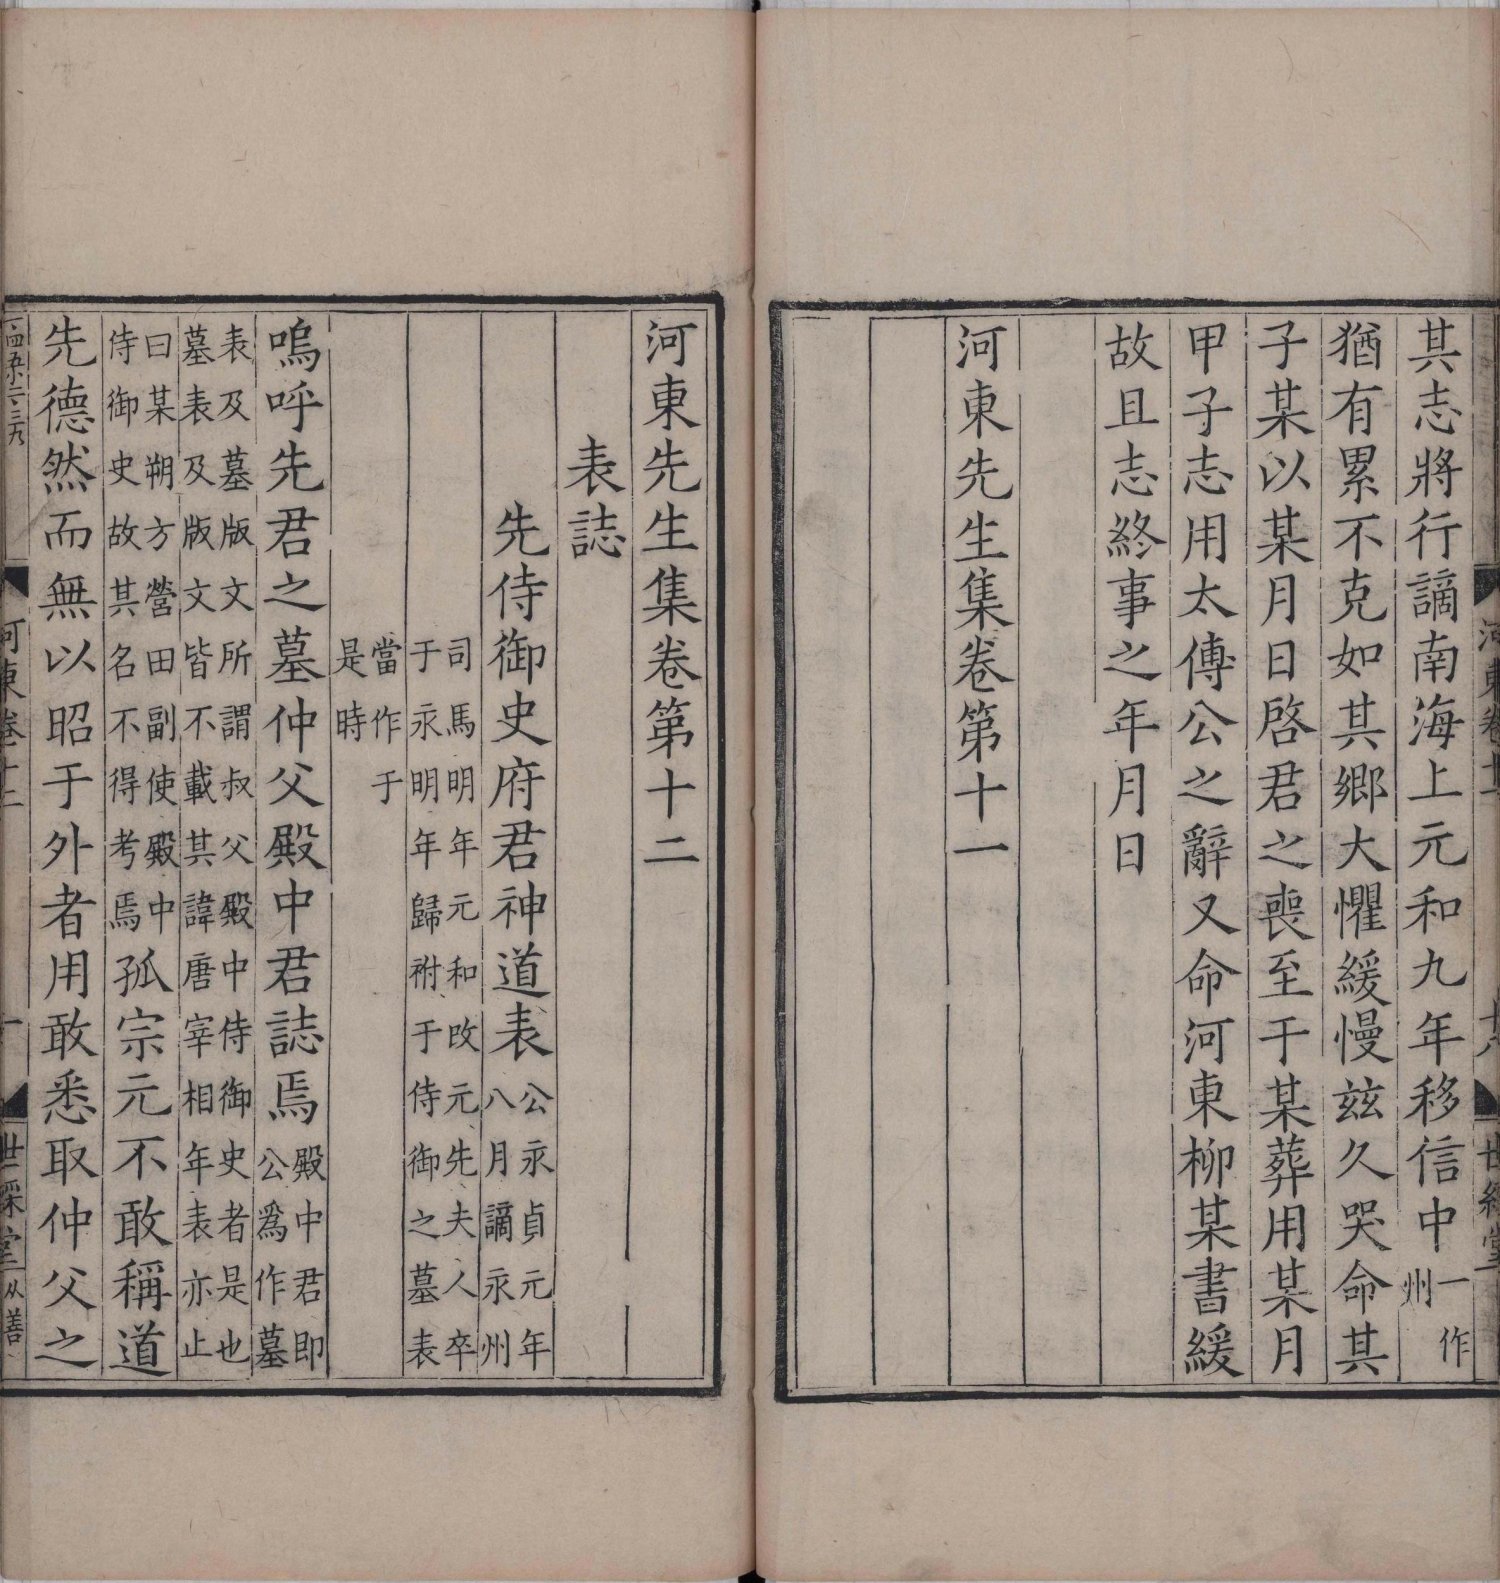 其志將行謫南海上元和九年移信中一作州
猶有累不克如其鄉大懼緩慢玆久哭命其
子某以某月日啓君之喪至于某葬用某月
甲子志用太傅公之辭又命河東柳某書緩
故且志終事之年月日
河東先生集卷第十一
河東先生集卷第十二
表誌
先侍御史府君神道表公永貞元年八月謫永州
司馬明年元和攺元先夫人卒
于永明年歸祔于侍御之墓表
當作于
是時
嗚呼先君之墓仲父殿中君誌焉殿中君即公爲作墓
表及墓版文所謂叔父殿中侍御史者是也
墓表及版文皆不載其諱唐宰相年表亦止
曰某朔方營田副使殿中侍御史故其名不得考焉孤宗元不敢稱道
先德然而無以昭于外者用敢悉取仲父之
河東卷十二
一
世綵堂
从善